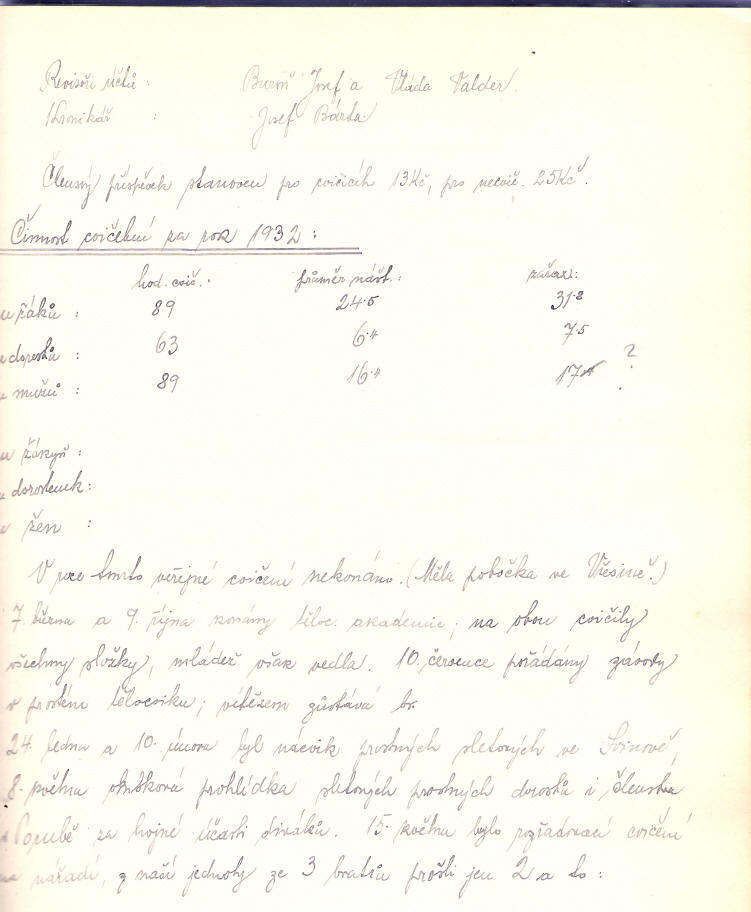 Revisoři účtů : Buroň Josef a Vláda Valder.
Kronikář : Josef Bárta
Členský příspěvek stanoven pro cvičících 13Kč, pro necvič. 25Kč.
Činnost cvičební za rok 1932 :
hod. cvič. průměr návšt. : zařaz. :
u žáků : 89 24·5 31·8
u dorostu : 63 6·4 7·5
u mužů : 89 16·4 17 ?
u žákyň :
u dorostenek :
u žen :
V roce tomto veřejné cvičení nekonáno. (Měla pobočka ve Vřesině.)
7. března a 9. října konány těloc. akademie; na obou cvičily
všechny složky, mládež však vedla. 10. července pořádány závody
v prostém tělocviku; vítězem zůstává br.
24. ledna a 10. února byl nácvik prostných sletových ve Svinově,
8. května okrsková prohlídka sletových prostných dorostu i členstva
v Porubě za hojné účasti diváků. 15. května bylo rozřaďovací cvičení
na nářadí, z naší jednoty ze 3 bratrů prošli jen 2 a to :